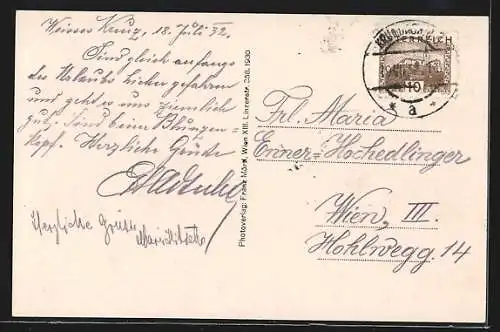 Weisses Kreuz, 18. Juli 32.
Sind gleich anfangs
des Urlaubs hieher gefahren
und geht es uns ziemlich
gut. Sind beim Blumen-
kopf. Herzliche Grüße
Herzliche Grüße
Photoverlag: Franz Mörtl, Wien XIII. Linzerstr. 358. 1930
ÖSTERREICH
10
* a *
Frl. Maria
Enner-Hochedlinger
Wien, III.
Hohlwegg. 14